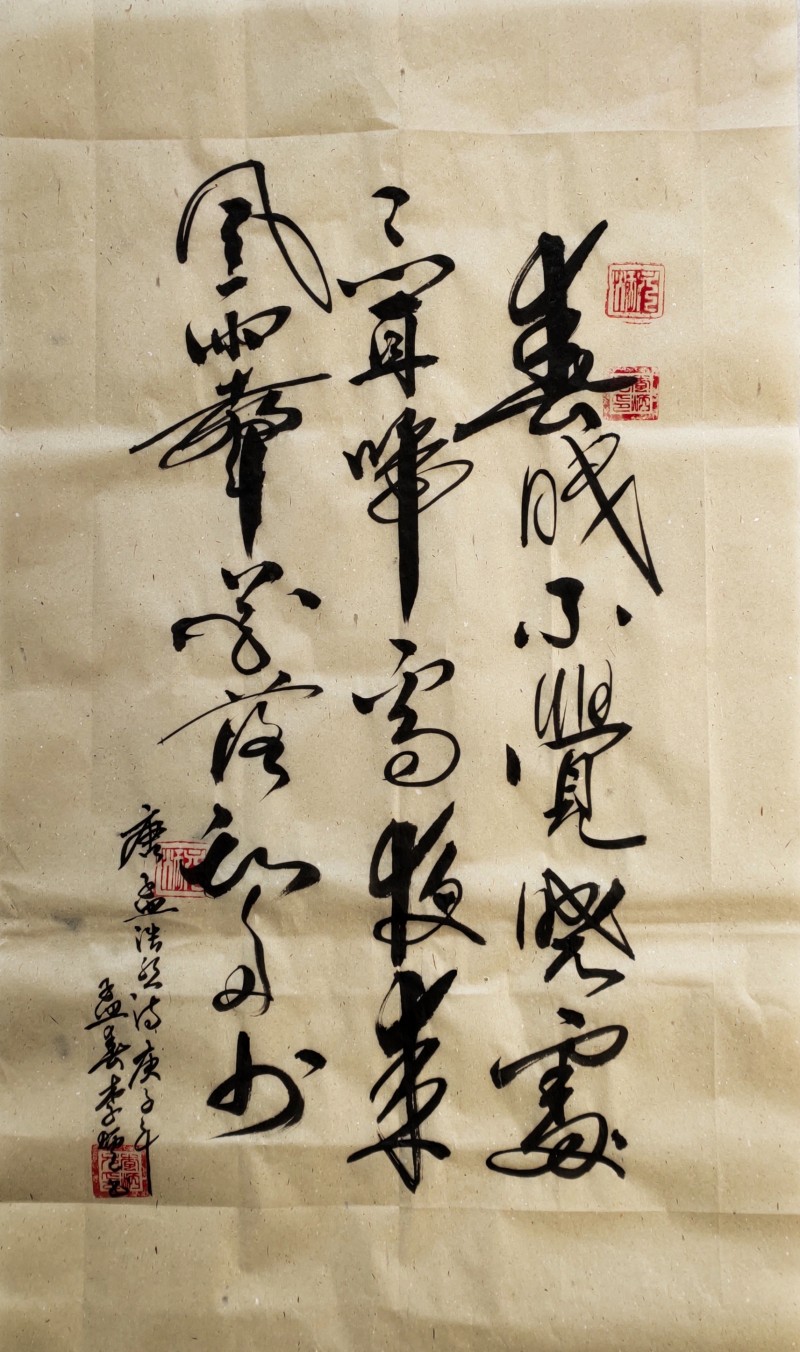 春眠不覺曉處
々聞啼鳥夜來
風雨聲花落知多少
唐孟浩然诗庚子年
孟春李炳元